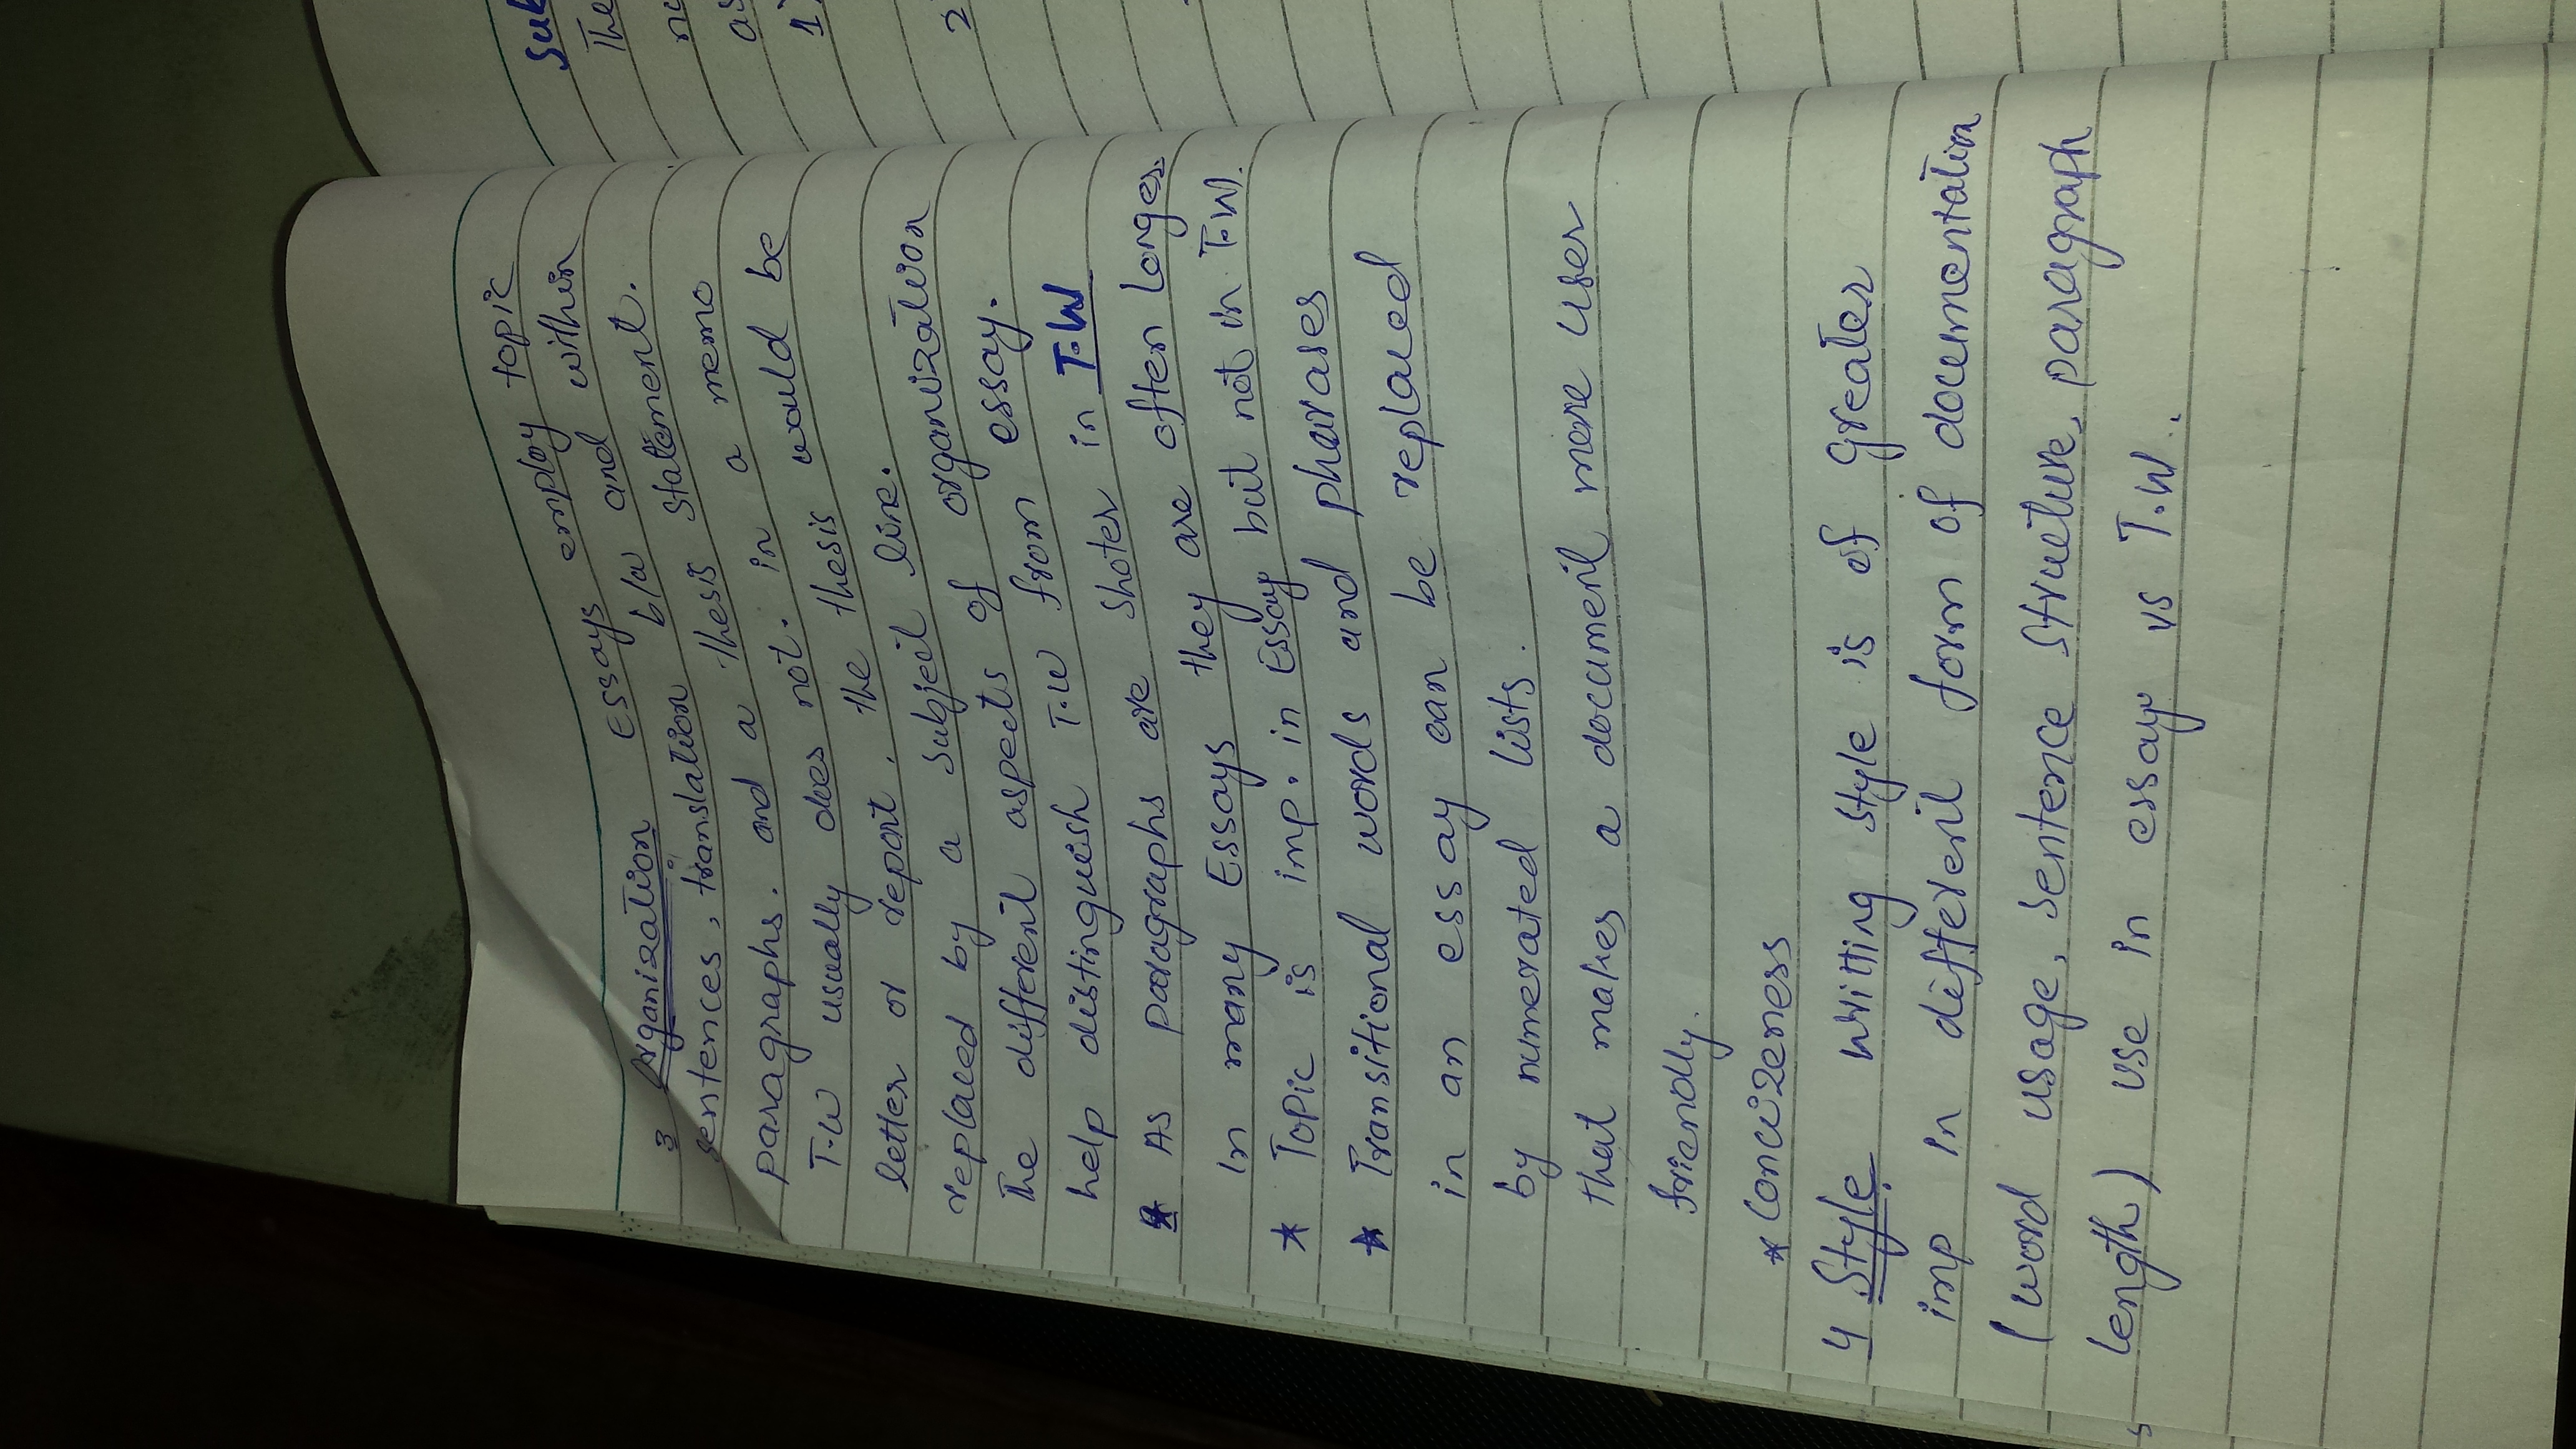 3 Organization Essays employ topic
sentences, translation b/w and within
paragraphs. and a thesis statement.
T.W usually does not. in a memo
letter or report, the thesis would be
replaced by a subject line.
The different aspects of organization
help distinguish T.W from essay.
* As paragraphs are shoter in T.W
In many Essays they are often longer.
* Topic is imp. in Essay but not in T.W.
* Transitional words and pharases
in an essay can be replaced
by numerated lists.
that makes a document more user
friendly.
* Concizeness
4 Style. Writting style is of greater
imp in different form of documentation
(word usage, sentence structure, paragraph
length) use in essay vs T.W.
Sub
The
no
as
1)
2